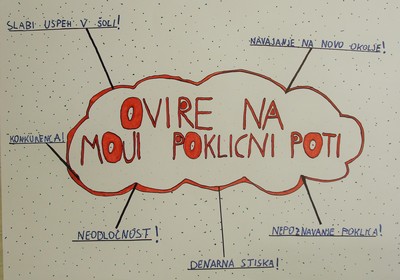 SLABI USPEH V ŠOLI!
NAVAJANJE NA NOVO OKOLJE!
OVIRE NA
MOJI POKLICNI POTI
KONKURENCA!
NEODLOČNOST!
DENARNA STISKA!
NEPOZNAVANJE POKLICA!